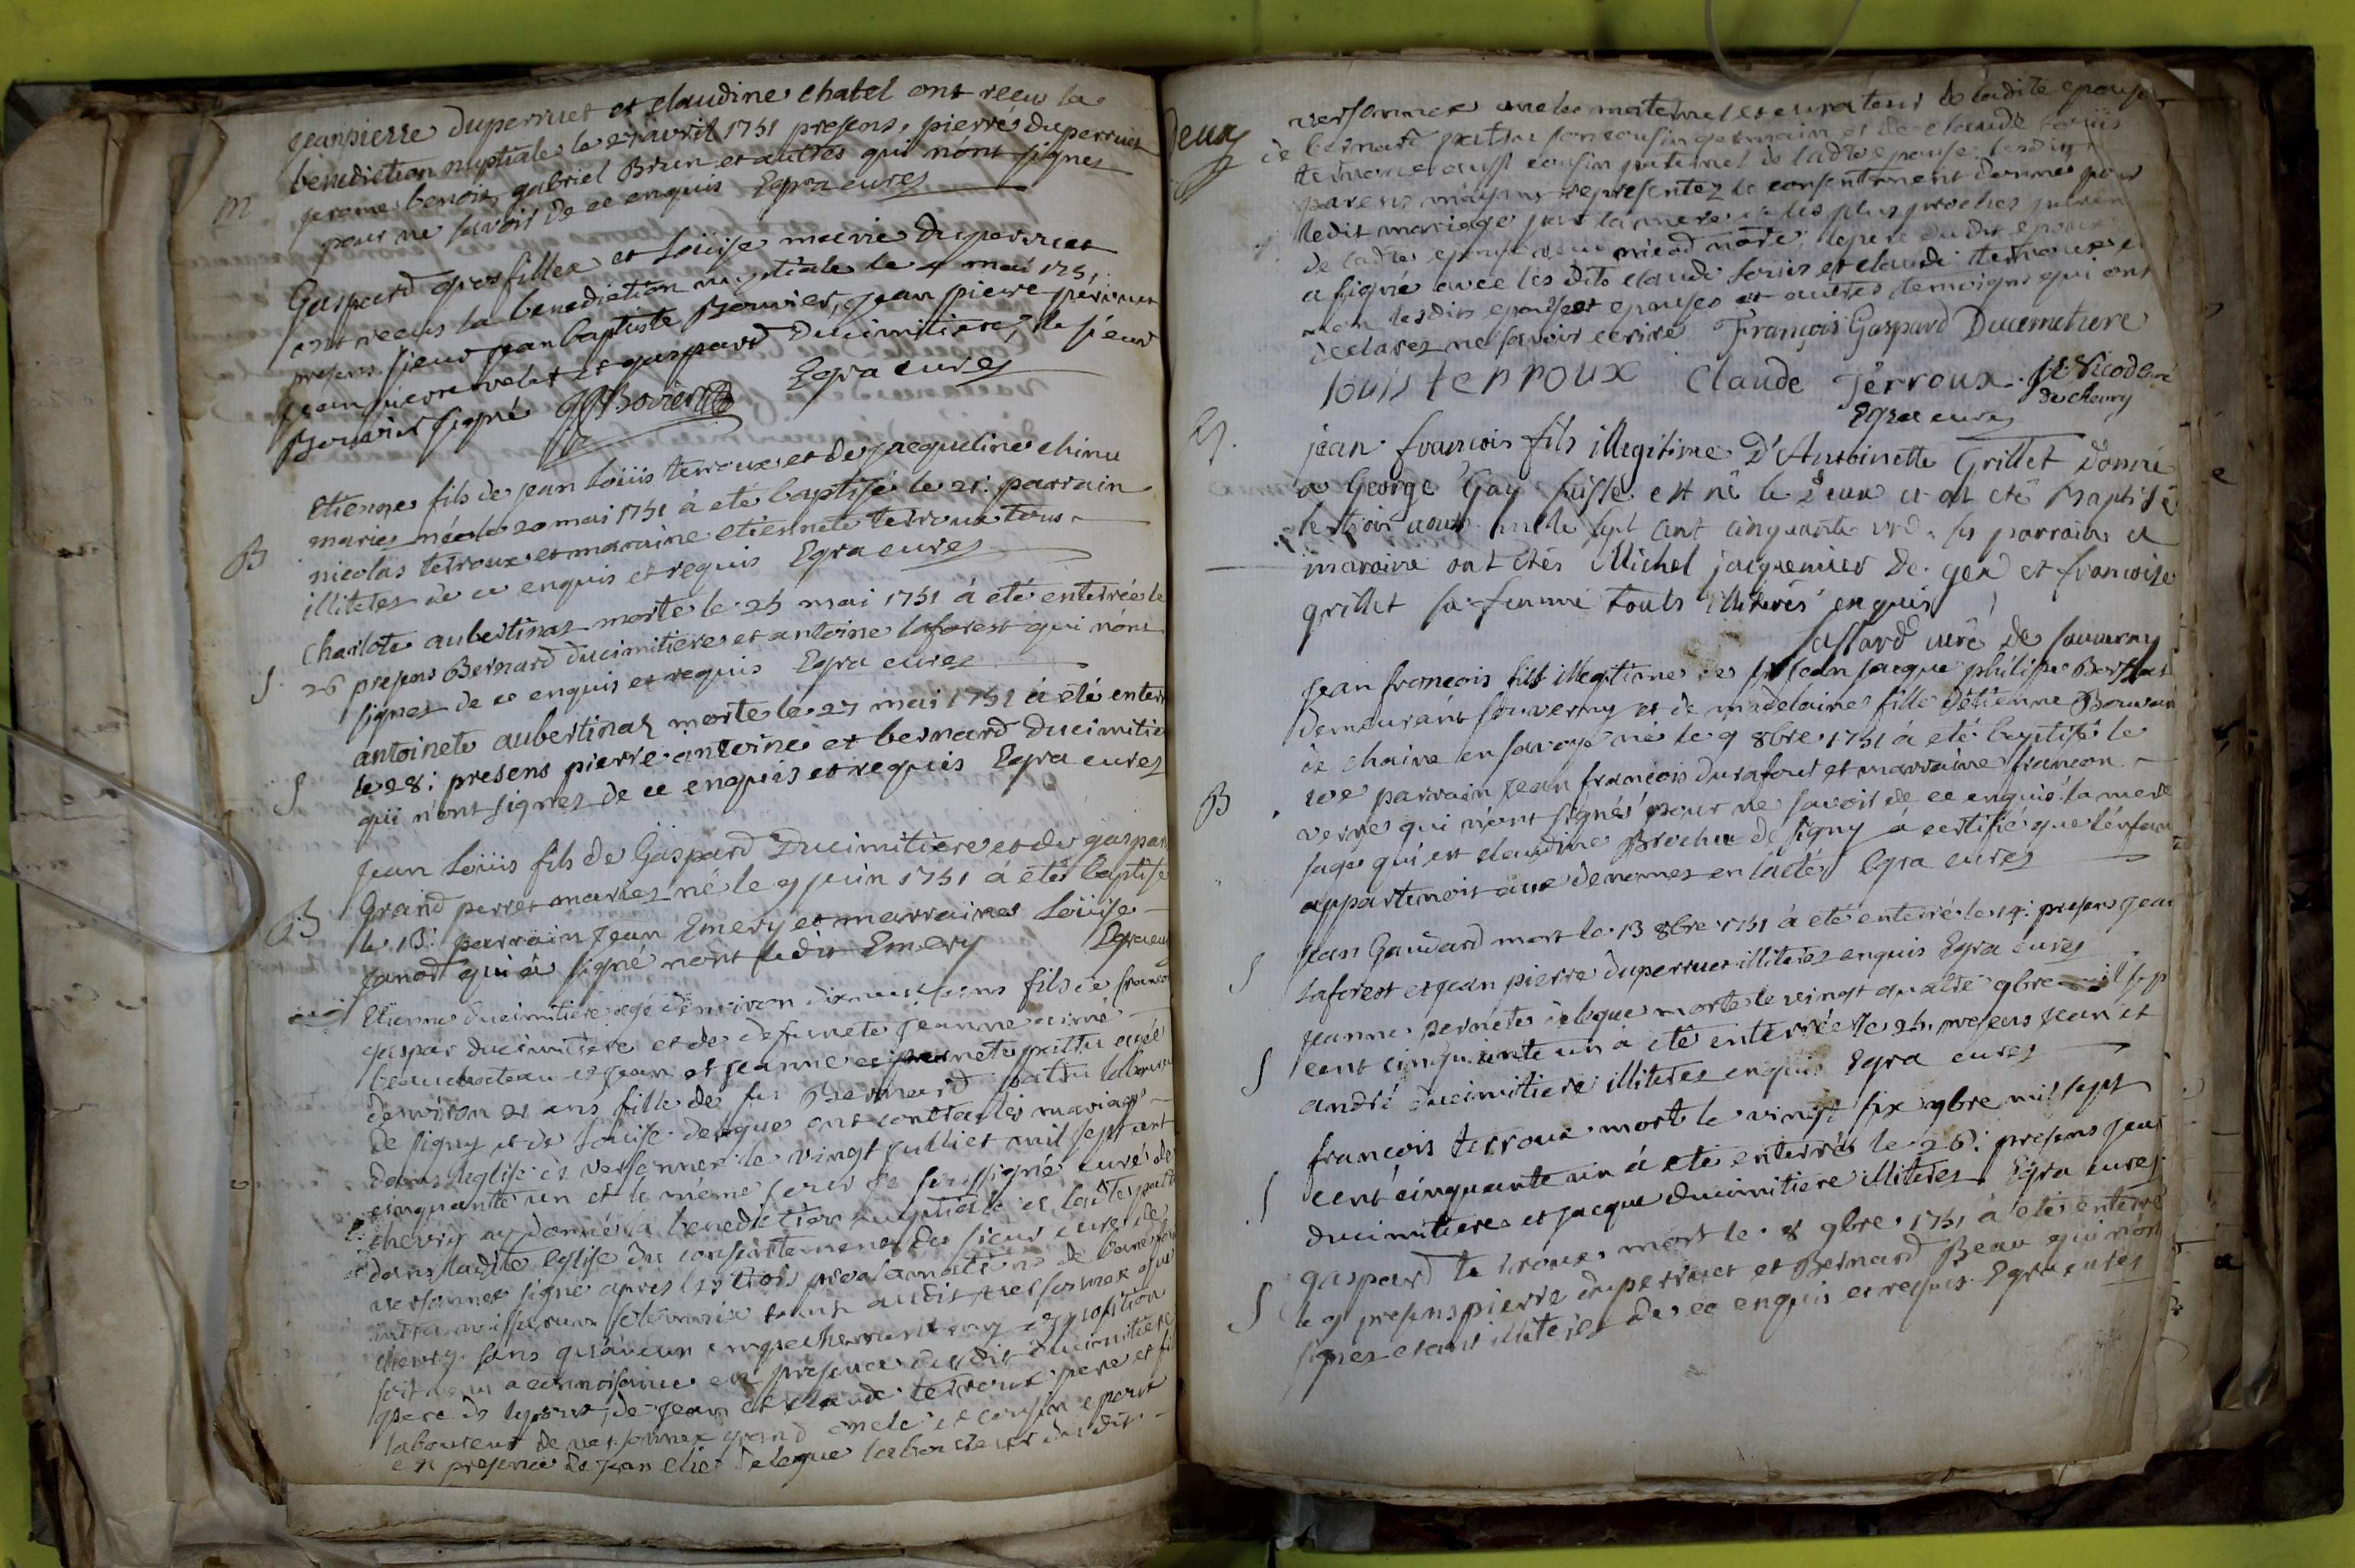 jean pierre duperruet et claudine chatel ont reçu la
benediction nuptiale le 27 avril 1751 presens, pierre duperruet
m jerome benoit, gabriel Brun et autres qui nont signez
pour ne savoir de ce enquis Egra curez
Gaspard grosfillex et Loüise marie duperruet
ont recus la benediction nuptiale le 4 mai 1751
presens sieur jean baptiste Bouvier, jean pierre
jean pierre velet et gaspard Ducimitiere, le sieur
Bouvier signé Egra curez
etienne fils de jean Loüis terroux et de jacqueline chinu
mariez né le 20 mai 1751 à eté baptisé le 21: parrain
B nicolas terroux et maraine etiennete terroux tous
illiterez de ce enquis et requis Egra curez
charlote aubertinaz morte le 25 mai 1751 à eté enterrée le
S 26 presens Bernard ducimitiere et antoine laforest qui nont
signez de ce enquis et requis Egra curez
antoinete aubertinaz morte le 27 mai 1751 à eté enter
S le 28: presens pierre antoine et bernard ducimitie
qui n'ont signez de ce enquis et requis Egra curez
jean Loüis fils de Gaspard Ducimitiere et de gaspar
Grand perret mariez né le 9 juin 1751 à eté baptisé
B le 13: parrain jean Emery et marraine Loüise
janod qui à signé nont ledit Emery Egra curez
Etienne ducimitiere agé denviron dixneuf ans fils de francois
gaspar ducimitiere et de defuncte jeanne aimé
beauchateau et jeanne pernete pattu agée
denviron 21 ans fille de feu Bernard pattu laboureur
de signy et de Loüise deleque ont contractés mariage
dans leglise de versonnex le vingt julliet mil sept cent
cinquante un et le même jour je soussigné curé de
chevry ay donné la benediction nuptiale et
dans ladite eglise du consentement du sieur curé de
versonnex signé apres les trois proclamations de
tant audit versonnex que
chevry sans qu'aucun empechement ny opposition
soit venu a connoissance en presence dudit ducimitiere
pere de lepoux, de jean et claude terroux pere et fi
laboureur de versonnex grand oncle et cousin epoux
en presence de jean deleque laboureur dudit
deux versonnex oncle maternel et curateur de ladite epouse
de bernard pattu son cousin germain et de claude Loüis
terroux aussi cousin paternel de ladte epouse. lesdits
parens mayant representez le consentement donné pour
ledit mariage par la mere et les plus proches parens
de ladte epouse le pere dudit epoux
a signé avec les dits claude Loüis et claude terroux et
non lesdits epoux et epouses et autres temoigns qui ont
declarez ne savoir ecrire François Gaspard Ducemetiere
louis terroux Claude Terroux
de chevry
Egra curez
B. jean francois fils illegitime D'Antoinette Grillet donné
a George Gay suisse est né le deux et at eté Baptisé
le trois aoust mille sept cent cinquante und. ses parrain et
maraine ont etés Michel jacquemier De gex et francoise
grillet sa femme touts illiterés enquis
Castard curé de sauverny
jean francois fils illegitime de sr jean jacque philipe
demeurant souverny et de madelaine fille d'etienne
de chaine en savoye né le 9 8bre 1751 à eté baptisé le
B 10e parrain jean francois durafour et marraine francon
verne qui n'ont signés pour ne savoir de ce enquis. la mere
sage qui est claudine Brochu de signy à certifié que l'enfant
appartenoit aux denomez en l'acte Egra curez
jean Gaudard mort le 13 8bre 1751 à eté enterré le 14: presens jean
S laforest et jean pierre duperruet illiterez enquis Egra curez
jeanne pernete deleque morte le vingt quatre 9bre mil sep
S cent cinquante un à eté enterrée le 25. presens jean et
andré ducimitiere illiterez enquis Egra curez
francois terroux mort le vingt six 9bre mil sept
S cent cinquante un à eté enterré le 28: presens jean
ducimitiere et jacque ducimitiere illiterez Egra curez
gaspard terroux mort le 8 9bre 1751 à eté enterré
S le 9 presens pierre duperruet et Bernard Beau qui n'ont
signez etant illiterez de ce enquis et requis Egra curez